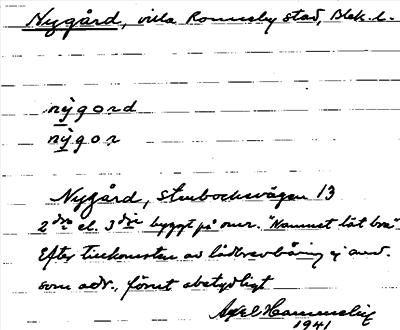 Nygård, villa Ronneby stad, Blek. l.
nỳgord
nỳgor
Nygård, Stenbocksvägen 13
2 dra el. 3 dje byggt på omr. "Namnet lät bra".
Efter tillkomsten av lådbrevbäring ej anv.
som adr., förut obetydligt
Axel Hammarlig
1941